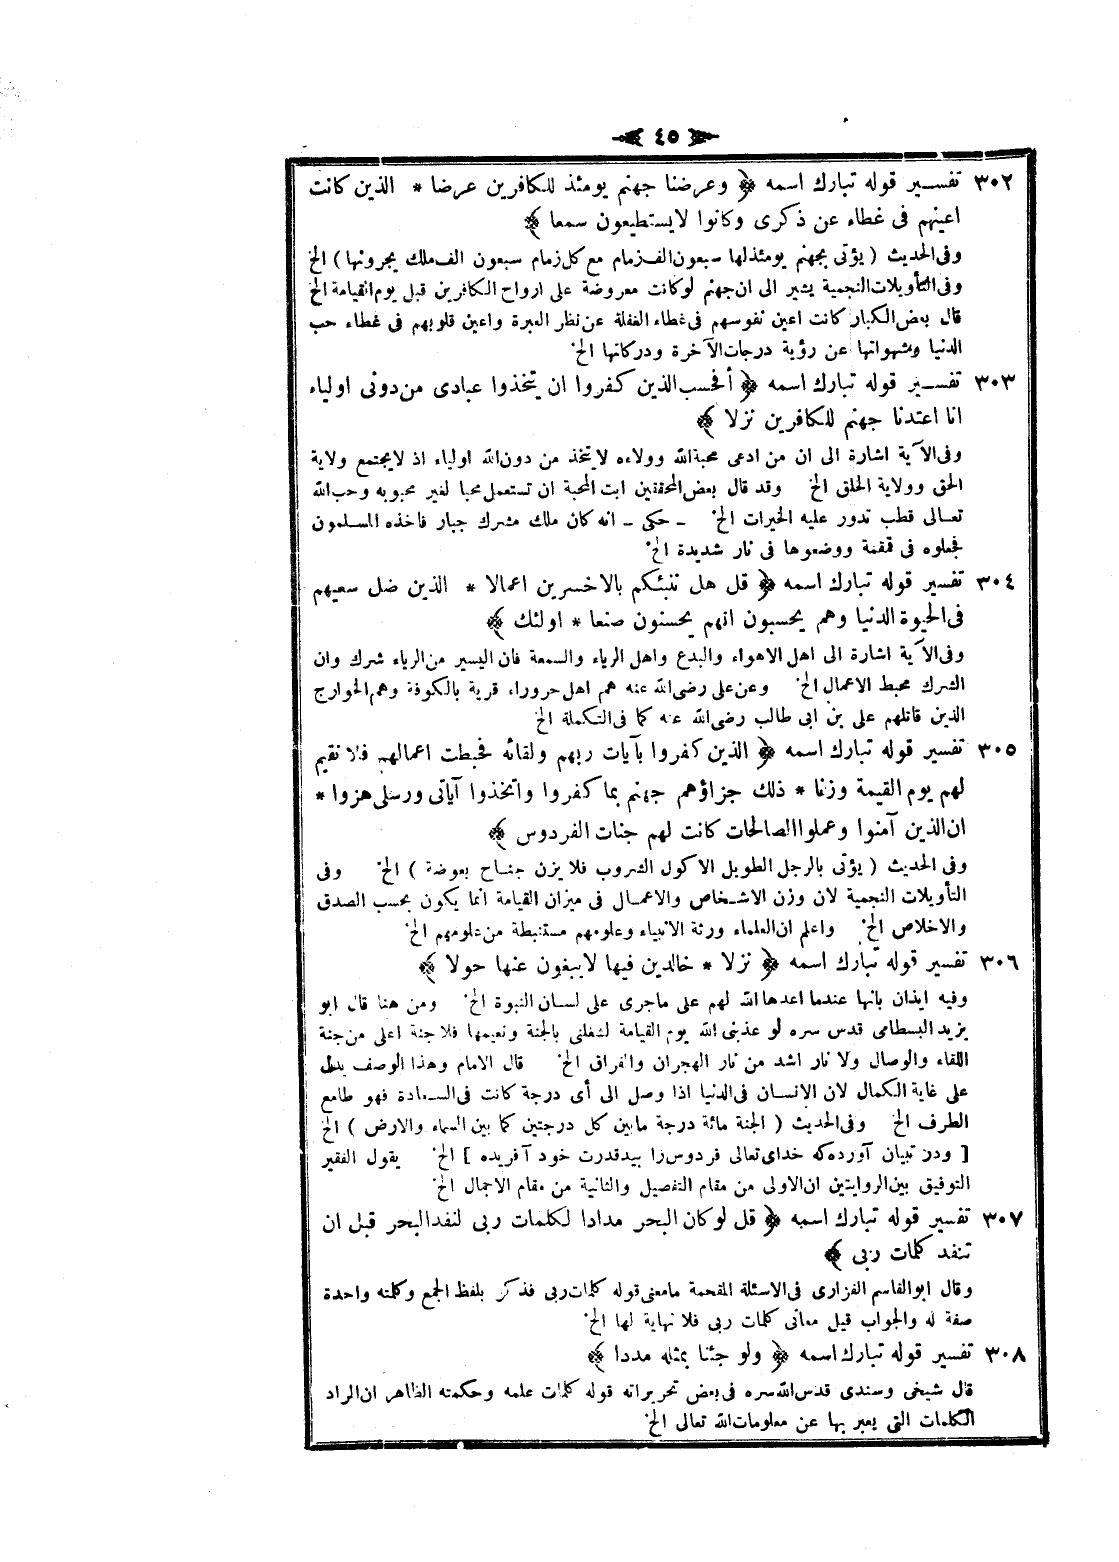 ٤٥
٣٠٢ تفسير قوله تبارك اسمه ﴿ وعرضنا جهنم يومئذ للكافرين عرضا * الذين كانت
اعينهم فى غطاء عن ذكرى وكانوا لايستطيعون سمعا ﴾
وفى الحديث ( يؤتى بجهنم يومئذلها سبعون الف زمام مع كل زمام سبعون الف ملك يجرونها ) الخ
وفى التأويلات النجمية يشير الى ان جهنم لوكانت معروضة على ارواح الكافرين قبل يوم القيامة الخ
قال بعض الكبار كانت اعين نفوسهم فى غطاء الغفلة عن نظر العبرة واعين قلوبهم فى غطاء حب
الدنيا وشهواتها عن رؤية درجات الآخرة ودركاتها الخ
٣٠٣ تفسير قوله تبارك اسمه ﴿ أفحسب الذين كفروا ان يتخذوا عبادى من دونى اولياء
انا اعتدنا جهنم للكافرين نزلا ﴾
وفى الآية اشارة الى ان من ادعى محبة الله وولاءه لايتخذ من دون الله اولياء اذ لايجتمع ولاية
الحق وولاية الخلق الخ وقد قال بعض المحققين ابت المحبة ان تستعمل محبا لغير محبوبه وحب الله
تعالى قطب تدور عليه الخيرات الخ - حكى - انه كان ملك مشرك جبار فاخذه المسلمون
فجعلوه فى قمقمة ووضعوها فى نار شديدة الخ
٣٠٤ تفسير قوله تبارك اسمه ﴿ قل هل ننبئكم بالاخسرين اعمالا * الذين ضل سعيهم
فى الحيوة الدنيا وهم يحسبون انهم يحسنون صنعا * اولئك ﴾
وفى الآية اشارة الى اهل الاهواء والبدع واهل الرياء والسمعة فان اليسير من الرياء شرك وان
الشرك محبط الاعمال الخ وعن على رضى الله عنه هم اهل حروراء قرية بالكوفة وهم الخوارج
الذين قاتلهم على بن ابى طالب رضى الله عنه كما فى التكملة الخ
٣٠٥ تفسير قوله تبارك اسمه ﴿ الذين كفروا بآيات ربهم ولقائه فحبطت اعمالهم فلا نقيم
لهم يوم القيمة وزنا * ذلك جزاؤهم جهنم بما كفروا واتخذوا آياتى ورسلى هزوا *
ان الذين آمنوا وعملوا الصالحات كانت لهم جنات الفردوس ﴾
وفى الحديث ( يؤتى بالرجل الطويل الاكول الشروب فلا يزن جناح بعوضة ) الخ وفى
التأويلات النجمية لان وزن الاشخاص والاعمال فى ميزان القيامة انما يكون بحسب الصدق
والاخلاص الخ واعلم ان العلماء ورثة الانبياء وعلومهم مستنبطة من علومهم الخ
٣٠٦ تفسير قوله تبارك اسمه ﴿ نزلا * خالدين فيها لايبغون عنها حولا ﴾
وفيه ايذان بانها عندما اعدها الله لهم على ماجرى على لسان النبوة الخ ومن هنا قال ابو
يزيد البسطامى قدس سره لو عذبنى الله يوم القيامة لشغلنى بالجنة ونعيمها فلا جنة اعلى من جنة
اللقاء والوصال ولا نار اشد من نار الهجران والفراق الخ قال الامام وهذا الوصف يدل
على غاية الكمال لان الانسان فى الدنيا اذا وصل الى أى درجة كانت فى السعادة فهو طامح
الطرف الخ وفى الحديث ( الجنة مائة درجة مابين كل درجتين كما بين السماء والارض ) الخ
[ ودر تبيان آورده كه خداى تعالى فردوس را بيد قدرت خود آفريده ] الخ يقول الفقير
التوفيق بين الروايتين ان الاولى من مقام التفصيل والثانية من مقام الاجمال الخ
٣٠٧ تفسير قوله تبارك اسمه ﴿ قل لوكان البحر مدادا لكلمات ربى لنفد البحر قبل ان
تنفد كلمات ربى ﴾
وقال ابوالقاسم الفزارى فى الاسئلة المفحمة مامعنى قوله كلمات ربى فذكر بلفظ الجمع وكلمته واحدة
صفة له والجواب قيل معانى كلمات ربى فلا نهاية لها الخ
٣٠٨ تفسير قوله تبارك اسمه ﴿ ولو جئنا بمثله مددا ﴾
قال شيخى وسندى قدس الله سره فى بعض تحريراته قوله كلمات علمه وحكمته الظاهر ان المراد
الكلمات التى يعبر بها عن معلومات الله تعالى الخ